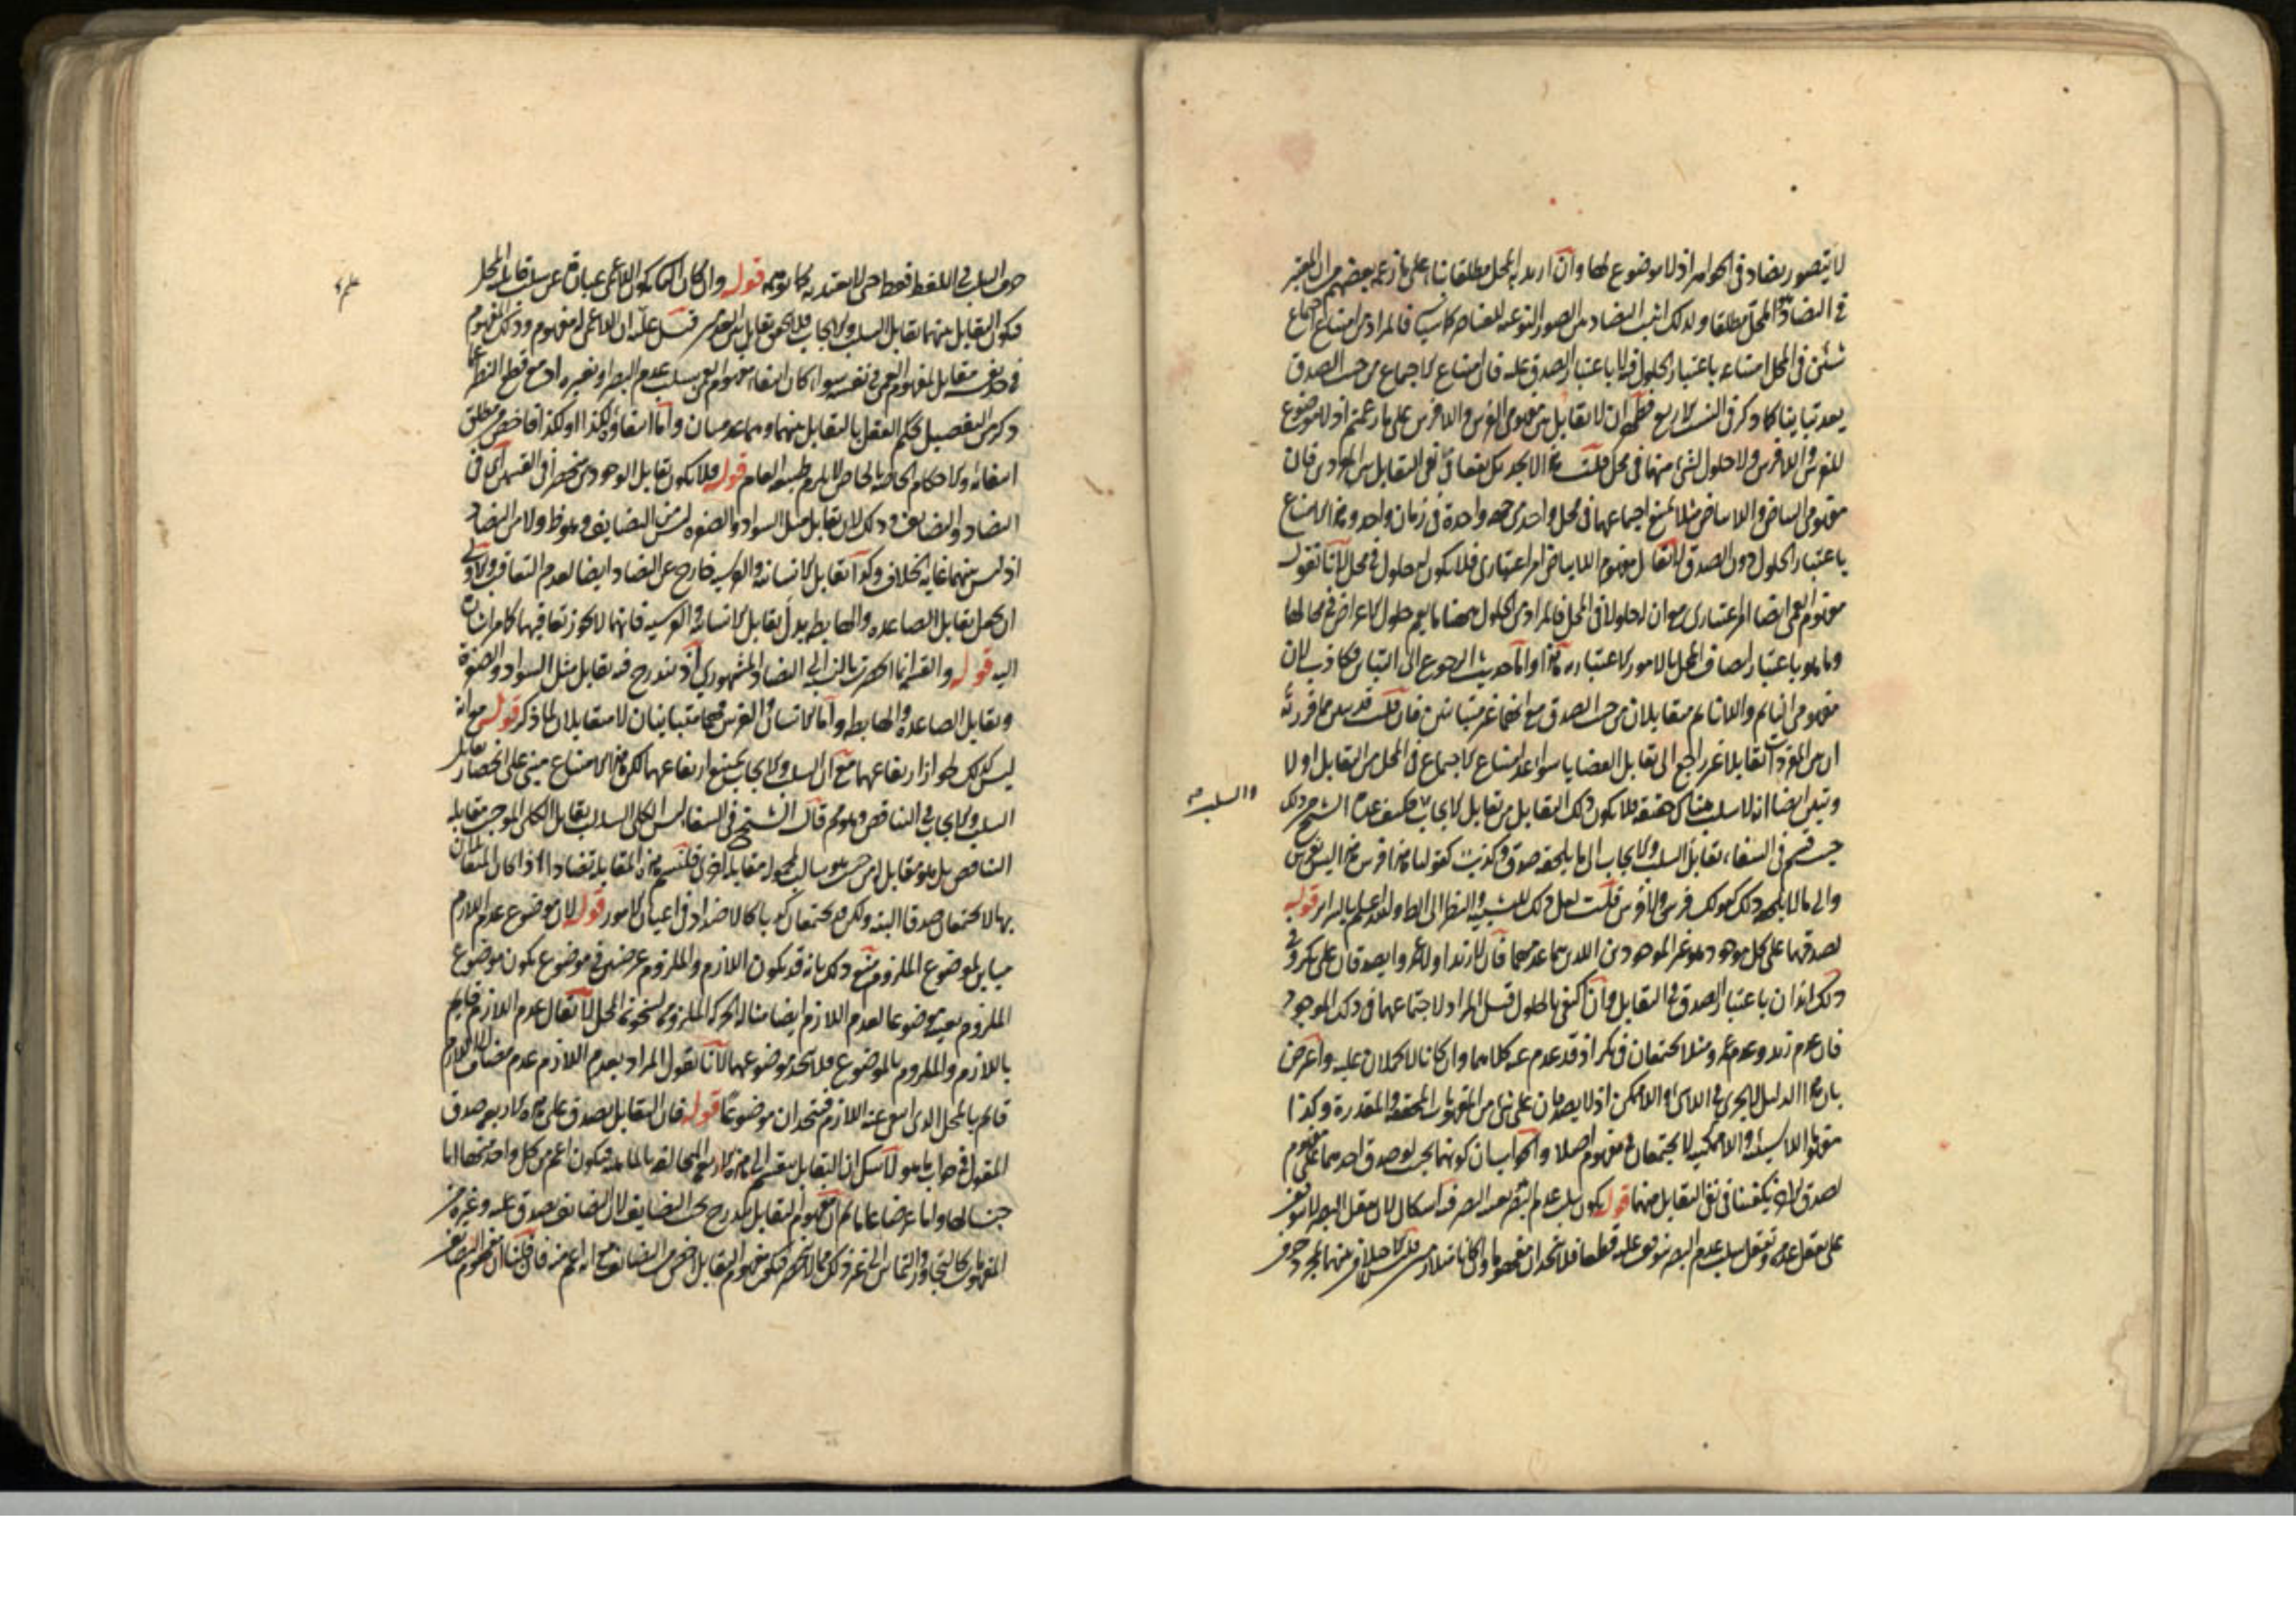 لا يتصور تضاد في الجواهر اذ لا موضوع لها وان اريد به المحل مطلقا بناء على ما زعمه بعضهم من ان المعتبر
في التضاد هو المحل مطلقا ولذلك اثبت التضاد بين الصور النوعية للعناصر فالمراد من امتناع اجتماع
شيئين في المحل امتناعه باعتبار الحلول فيه لا باعتبار الصدق عليه فان امتناع الاجتماع من حيث الصدق
يعد تباينا كما ذكر في النسب الاربع فظهر ان لا تقابل بين مفهومي الفرس واللافرس على ما زعمتم اذ لا موضوع
للفرس واللافرس ولا حلول لشيء منهما في محل قلت هذا لا يجديك نفعا في نفي التقابل بين فان
مفهومي البياض واللابياض مثلا يمتنع اجتماعهما في محل واحد من جهة واحدة في زمان واحد وهذا الامتناع
باعتبار الحلول دون الصدق لا يقال مفهوم اللابياض امر اعتباري فلا يكون له حلول في محل لانا نقول
مفهوم العمى ايضا امر اعتباري مع ان له حلولا في المحل فالمراد من الحلول ههنا ما يعم حلول الاعراض في محالها
وما هو باعتبار اتصاف المحل بالامور الاعتبارية هذا واما حديث الرجوع الى التباين فكاذب لان
مفهومي النائم واللانائم متقابلان من حيث الصدق مع انهما غير متباينين فان قلت قد تبين مما قررته
ان بين المفردات تقابلا غير راجع الى تقابل القضايا سواء عد امتناع الاجتماع في المحل من التقابل او لا
وتبين ايضا انه لا سلب هناك حقيقة فلا يكون ذلك التقابل من تقابل الايجاب فكيف عده الشيخ من ذلك
والسلب صح
حيث قسم في الشفاء تقابل السلب والايجاب الى ما يلحقه صدق وكذب كقولنا هذا فرس هذا ليس بفرس
والى ما لا يلحقه ذلك كقولك فرس ولافرس قلت لعل ذلك للتشبيه والنظر الى الظاهر والله اعلم بالسراير قوله
لصدقهما على كل موجود هو غير الموجودين اللذين هما عدمهما فان لا زيد ا ولا عمروا يصدقان على بكر وفي
ذلك انه ان باعتبار الصدق في التقابل وان اكتفي بالحلول قيل المراد لاجتماعهما في ذلك الموجود
فان عدم زيد وعدم عمرو مثلا يجتمعان في بكر اذ قد عدم عنه كلاهما وان كانا لا يحملان عليه واعترض
بان هذا الدليل لا يجري في اللاشيء واللاممكن اذ لا يصدقان على شيء من المفهومات المحققة والمقدرة وكذا
مفهوما اللاشيئية واللاممكنية لا يجتمعان في مفهوم اصلا والجواب ان كونهما بحيث لو صدق احدهما على مفهوم
لصدق الاخر يكفينا في نفي التقابل بينهما قوله يكون سلب عدم البصر بعينه البصر فيه اشكال لان تعقل البصر لا يتوقف
على تعقل عدمه وتعقل سلب عدم البصر يتوقف عليه قطعا فلا يتحدان مفهوما وان كانا متلازمين فلا خلاف بينهما بمجرد حرف
حرف السلب في اللفظ فقط حتى لا يعتد به كما توهمه قوله وان كان الثاني كون اللاعمى عبارة عن سلب قابلية المحل
فيكون التقابل بينهما تقابل السلب والايجاب فلا يتحقق تقابل بين العدمين قيل عليه ان اللاعمى له مفهوم وذلك المفهوم
في حد نفسه مقابل لمفهوم العمى في نفسه سواء كان انتفاء مفهوم العمى بسلب عدم البصر او بغيره اذ مع قطع النظر عما
ذكر من التفصيل يحكم العقل بالتقابل بينهما وهما عدميان واما انتفاؤه لكذا او لكذا فاخص من مطلق
انتفائه والاحكام الخاصة بالخاص لا يلزم طبيعة العام قوله فلا يكون تقابل الوجودين منحصرا في القسمين اي في
التضاد والتضايف وذلك لان تقابل مثل السواد والصفرة ليس من التضايف وهو ظ ولا من التضاد
اذ ليس بينهما غاية الخلاف وكذا تقابل الانسانية والفرسية خارج عن التضاد ايضا لعدم التعاقب والاولى
ان يجعل تقابل الصاعدة والهابطة بدل تقابل الانسانية والفرسية فانهما لا يجوز تعاقبهما كما مر اشارة
اليه قوله والقسم انما انحصر بالنسبة الى التضاد المشهوري اذ يندرج فيه تقابل مثل السواد والصفرة
وتقابل الصاعدة والهابطة واما الانسان والفرس فهما متباينان لا متقابلان لما ذكر قوله مع انه
ليس كذلك لجواز ارتفاعهما مع ان السلب والايجاب يمتنع ارتفاعهما لكن هذا الامتناع مبني على انحصار تقابل
السلب والايجاب في التناقض وهو مم قال الشيخ في الشفا ليس الكلي السالب يقابل الكلي الموجب مقابلة
التناقض بل هو مقابل له من حيث هو سالب لمحموله مقابلة اخرى فلنسم هذه المقابلة تضادا اذا كان المتقابلان
بها لا يجتمعان صدقا البتة ولكن قد يجتمعان كذبا كالاضداد في اعيان الامور قوله لان موضوع عدم اللازم
مباين لموضوع الملزوم منع ذلك بانه قد يكون اللازم والملزوم عرضين في موضوع يكون موضوع
الملزوم بعينه موضوعا لعدم اللازم ايضا مثاله الحركة الملزومة لسخونة المحل لا يقال عدم اللازم قايم
باللازم والملزوم بالموضوع فلا يتحد موضوعهما لانا نقول المراد بعدم اللازم عدم مضاف الى اللازم
قائم بالمحل الذي انتفى عنه اللازم فيتحدان موضوعا قوله فان التقابل يصدق على هذه الاربعة صدق
المقول في جواب ما هو لا شك ان التقابل ينقسم الى هذه الاربع المتخالفة بالماهية فيكون اعم من كل واحد منها اما
جنسا لها واما عرضا عاما ثم ان مفهوم التقابل يندرج تحت التضايف لان التضايف يصدق عليه وغيره من
المفهومات كالتجاور والتماس الى غير ذلك مما لا ينحصر فيكون مفهوم التقابل اخص من التضايف مع انه اعم منه فان قلنا ان مفهوم التضايف